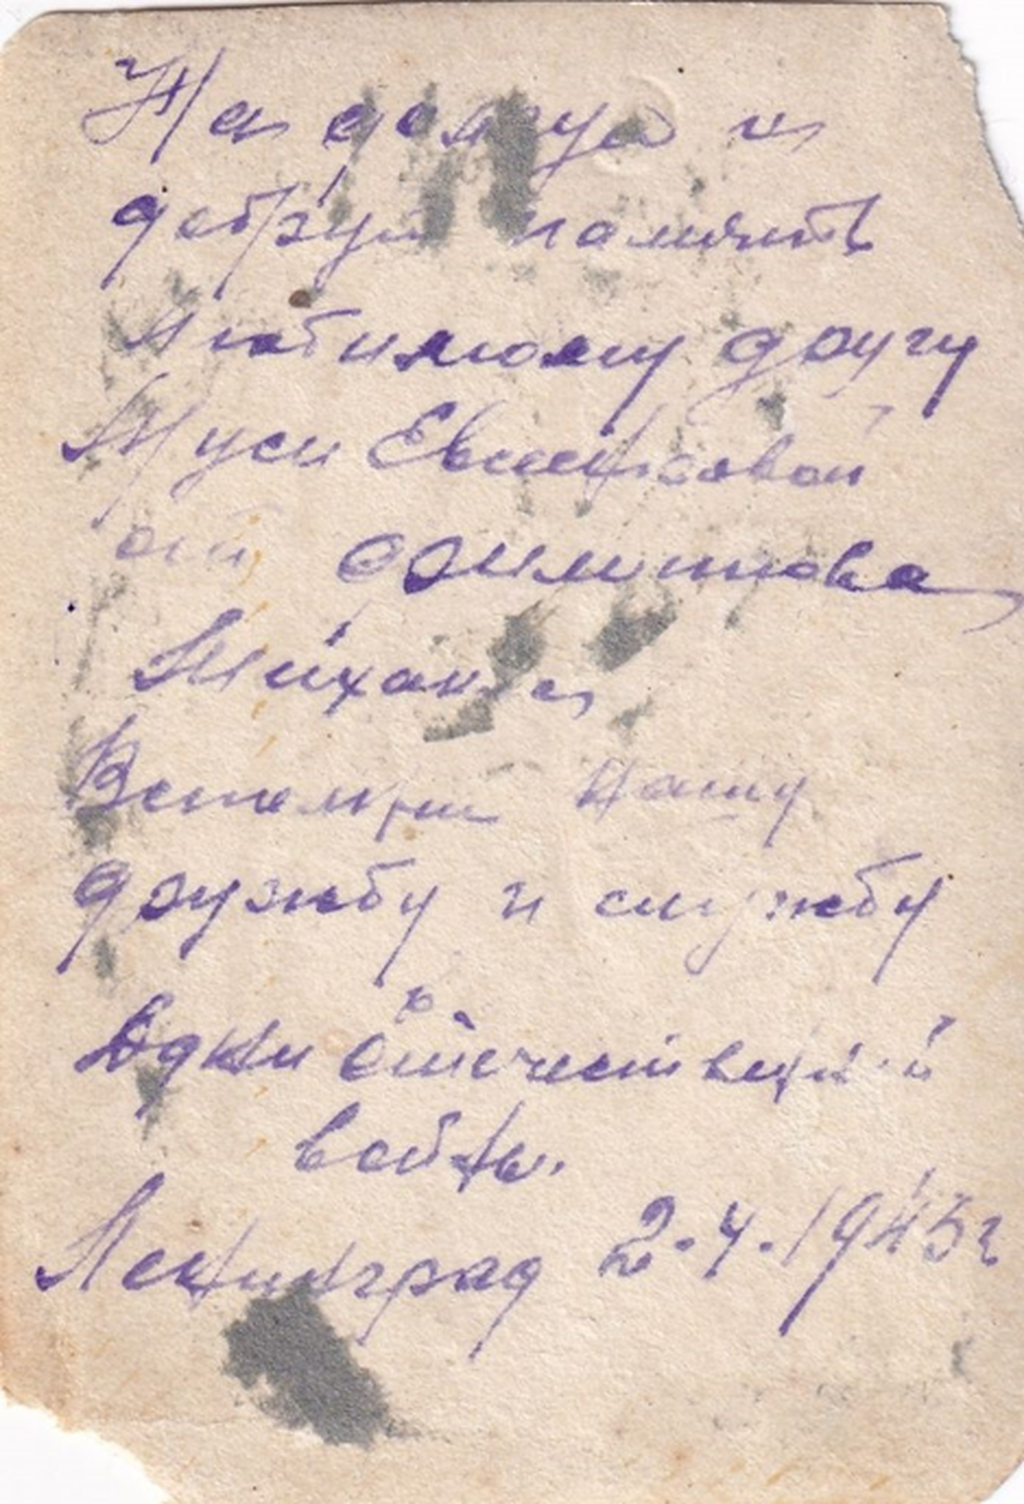 На долгую и
добрую память
любимому другу
Муси
от Филиппова
Михаила
Вспомни нашу
дружбу и службу
в дни Отечественной
войны.
Ленинград 2.4.1945г